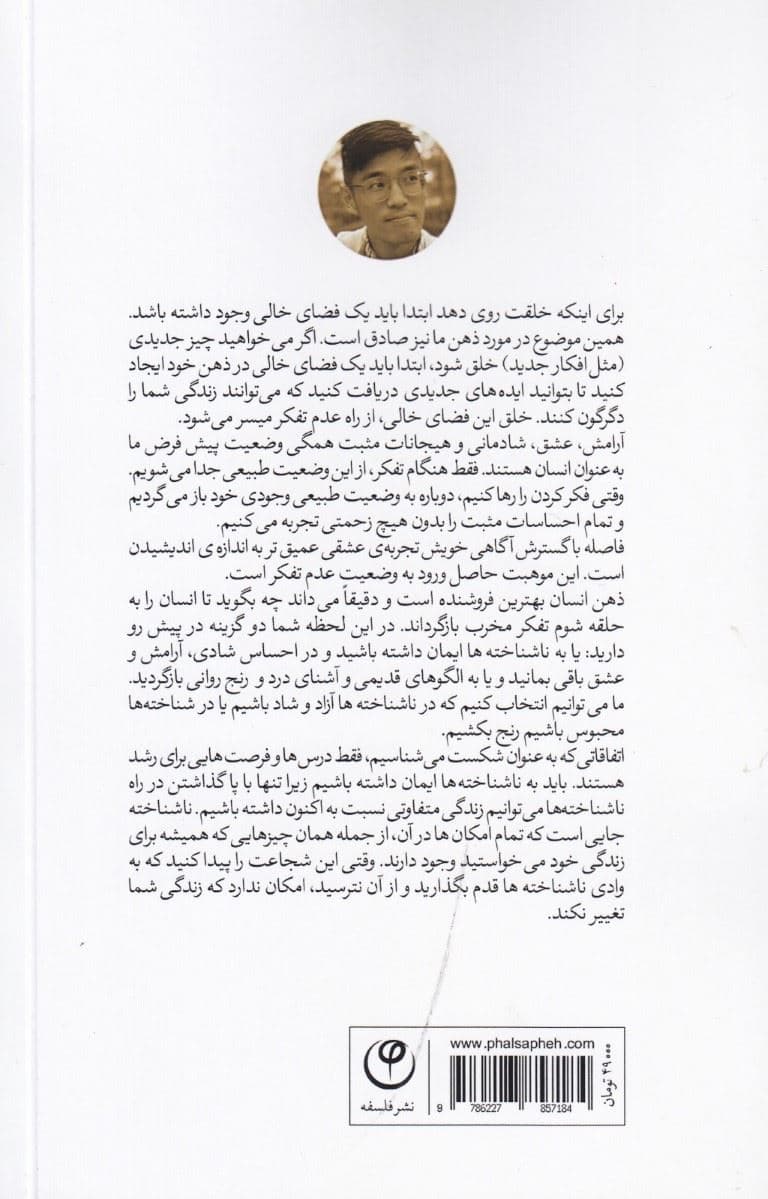 برای اینکه خلقت روی دهد ابتدا باید یک فضای خالی وجود داشته باشد.
همین موضوع در مورد ذهن ما نیز صادق است. اگر می خواهید چیز جدیدی
(مثل افکار جدید) خلق شود، ابتدا باید یک فضای خالی در ذهن خود ایجاد
کنید تا بتوانید ایده‌های جدیدی دریافت کنید که می‌توانند زندگی شما را
دگرگون کنند. خلق این فضای خالی، از راه عدم تفکر میسر می‌شود.
آرامش، عشق، شادمانی و هیجانات مثبت همگی وضعیت پیش فرض ما
به عنوان انسان هستند. فقط هنگام تفکر، از این وضعیت طبیعی جدا می شویم.
وقتی فکر کردن را رها کنیم، دوباره به وضعیت طبیعی وجودی خود باز می گردیم
و تمام احساسات مثبت را بدون هیچ زحمتی تجربه می کنیم.
فاصله با گسترش آگاهی خویش تجربه‌ی عشقی عمیق تر به اندازه ی اندیشیدن
است. این موهبت حاصل ورود به وضعیت عدم تفکر است.
ذهن انسان بهترین فروشنده است و دقیقاً می داند چه بگوید تا انسان را به
حلقه شوم تفکر مخرب بازگرداند. در این لحظه شما دو گزینه در پیش رو
دارید: یا به ناشناخته ها ایمان داشته باشید و در احساس شادی، آرامش و
عشق باقی بمانید و یا به الگوهای قدیمی و آشنای درد و رنج روانی بازگردید.
ما می توانیم انتخاب کنیم که در ناشناخته ها آزاد و شاد باشیم یا در شناخته‌ها
محبوس باشیم رنج بکشیم.
اتفاقاتی که به عنوان شکست می‌شناسیم، فقط درس ها و فرصت هایی برای رشد
هستند. باید به ناشناخته‌ها ایمان داشته باشیم زیرا تنها با پا گذاشتن در راه
ناشناخته‌ها می توانیم زندگی متفاوتی نسبت به اکنون داشته باشیم. ناشناخته
جایی است که تمام امکان ها در آن، از جمله همان چیزهایی که همیشه برای
زندگی خود می خواستید وجود دارند. وقتی این شجاعت را پیدا کنید که به
وادی ناشناخته ها قدم بگذارید و از آن نترسید، امکان ندارد که زندگی شما
تغییر نکند.
www.phalsapheh.com
۴۹۰۰۰ تومان
9 786227 857184
نشر فلسفه